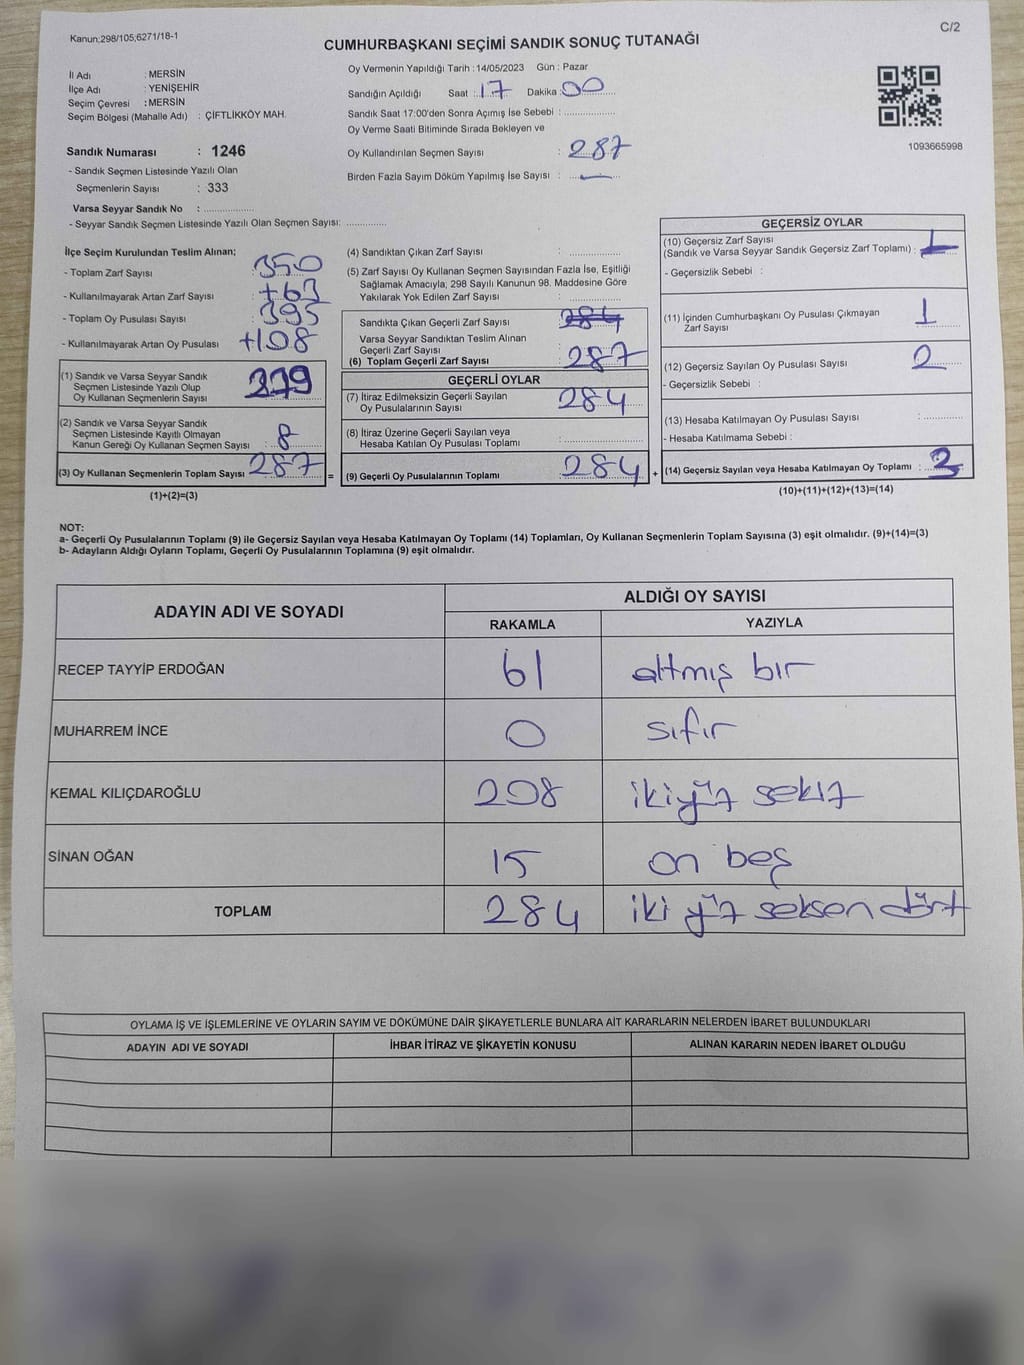 Kanun;298/105;6271/18-1
C/2
CUMHURBAŞKANI SEÇİMİ SANDIK SONUÇ TUTANAĞI
İl Adı : MERSİN
İlçe Adı : YENİŞEHİR
Seçim Çevresi : MERSİN
Seçim Bölgesi (Mahalle Adı) : ÇİFTLİKKÖY MAH.
Sandık Numarası : 1246
- Sandık Seçmen Listesinde Yazılı Olan
Seçmenlerin Sayısı : 333
Varsa Seyyar Sandık No : ..................
- Seyyar Sandık Seçmen Listesinde Yazılı Olan Seçmen Sayısı: ..............
Oy Vermenin Yapıldığı Tarih : 14/05/2023 Gün : Pazar
Sandığın Açıldığı Saat : 17 Dakika : 00
Sandık Saat 17:00'den Sonra Açımış İse Sebebi : ..................
Oy Verme Saati Bitiminde Sırada Bekleyen ve
Oy Kullandırılan Seçmen Sayısı : 287
Birden Fazla Sayım Döküm Yapılmış İse Sayısı : —
1093665998
İlçe Seçim Kurulundan Teslim Alınan;
- Toplam Zarf Sayısı : 350
- Kullanılmayarak Artan Zarf Sayısı : +63
- Toplam Oy Pusulası Sayısı : 395
- Kullanılmayarak Artan Oy Pusulası +108
(1) Sandık ve Varsa Seyyar Sandık
Seçmen Listesinde Yazılı Olup
Oy Kullanan Seçmenlerin Sayısı 279
(2) Sandık ve Varsa Seyyar Sandık
Seçmen Listesinde Kayıtlı Olmayan
Kanun Gereği Oy Kullanan Seçmen Sayısı : 8
(3) Oy Kullanan Seçmenlerin Toplam Sayısı : 287 =
(1)+(2)=(3)
(4) Sandıktan Çıkan Zarf Sayısı : ..................
(5) Zarf Sayısı Oy Kullanan Seçmen Sayısından Fazla İse, Eşitliği
Sağlamak Amacıyla; 298 Sayılı Kanunun 98. Maddesine Göre
Yakılarak Yok Edilen Zarf Sayısı : ..................
Sandıkta Çıkan Geçerli Zarf Sayısı 284
Varsa Seyyar Sandıktan Teslim Alınan
Geçerli Zarf Sayısı
(6) Toplam Geçerli Zarf Sayısı : 287
GEÇERLİ OYLAR
(7) İtiraz Edilmeksizin Geçerli Sayılan
Oy Pusulalarının Sayısı : 284
(8) İtiraz Üzerine Geçerli Sayılan veya
Hesaba Katılan Oy Pusulası Toplamı : ..................
(9) Geçerli Oy Pusulalarının Toplamı : 284 +
GEÇERSİZ OYLAR
(10) Geçersiz Zarf Sayısı
(Sandık ve Varsa Seyyar Sandık Geçersiz Zarf Toplamı) :
- Geçersizlik Sebebi :
(11) İçinden Cumhurbaşkanı Oy Pusulası Çıkmayan
Zarf Sayısı 1
(12) Geçersiz Sayılan Oy Pusulası Sayısı : 2
- Geçersizlik Sebebi :
(13) Hesaba Katılmayan Oy Pusulası Sayısı : ..............
- Hesaba Katılmama Sebebi :
(14) Geçersiz Sayılan veya Hesaba Katılmayan Oy Toplamı : 3
(10)+(11)+(12)+(13)=(14)
NOT:
a- Geçerli Oy Pusulalarının Toplamı (9) ile Geçersiz Sayılan veya Hesaba Katılmayan Oy Toplamı (14) Toplamları, Oy Kullanan Seçmenlerin Toplam Sayısına (3) eşit olmalıdır. (9)+(14)=(3)
b- Adayların Aldığı Oyların Toplamı, Geçerli Oy Pusulalarının Toplamına (9) eşit olmalıdır.
ADAYIN ADI VE SOYADI ALDIĞI OY SAYISI
RAKAMLA YAZIYLA
RECEP TAYYİP ERDOĞAN 61 altmış bir
MUHARREM İNCE 0 sıfır
KEMAL KILIÇDAROĞLU 208 iki yüz sekiz
SİNAN OĞAN 15 on beş
TOPLAM 284 iki yüz seksen dört
OYLAMA İŞ VE İŞLEMLERİNE VE OYLARIN SAYIM VE DÖKÜMÜNE DAİR ŞİKAYETLERLE BUNLARA AİT KARARLARIN NELERDEN İBARET BULUNDUKLARI
ADAYIN ADI VE SOYADI İHBAR İTİRAZ VE ŞİKAYETİN KONUSU ALINAN KARARIN NEDEN İBARET OLDUĞU